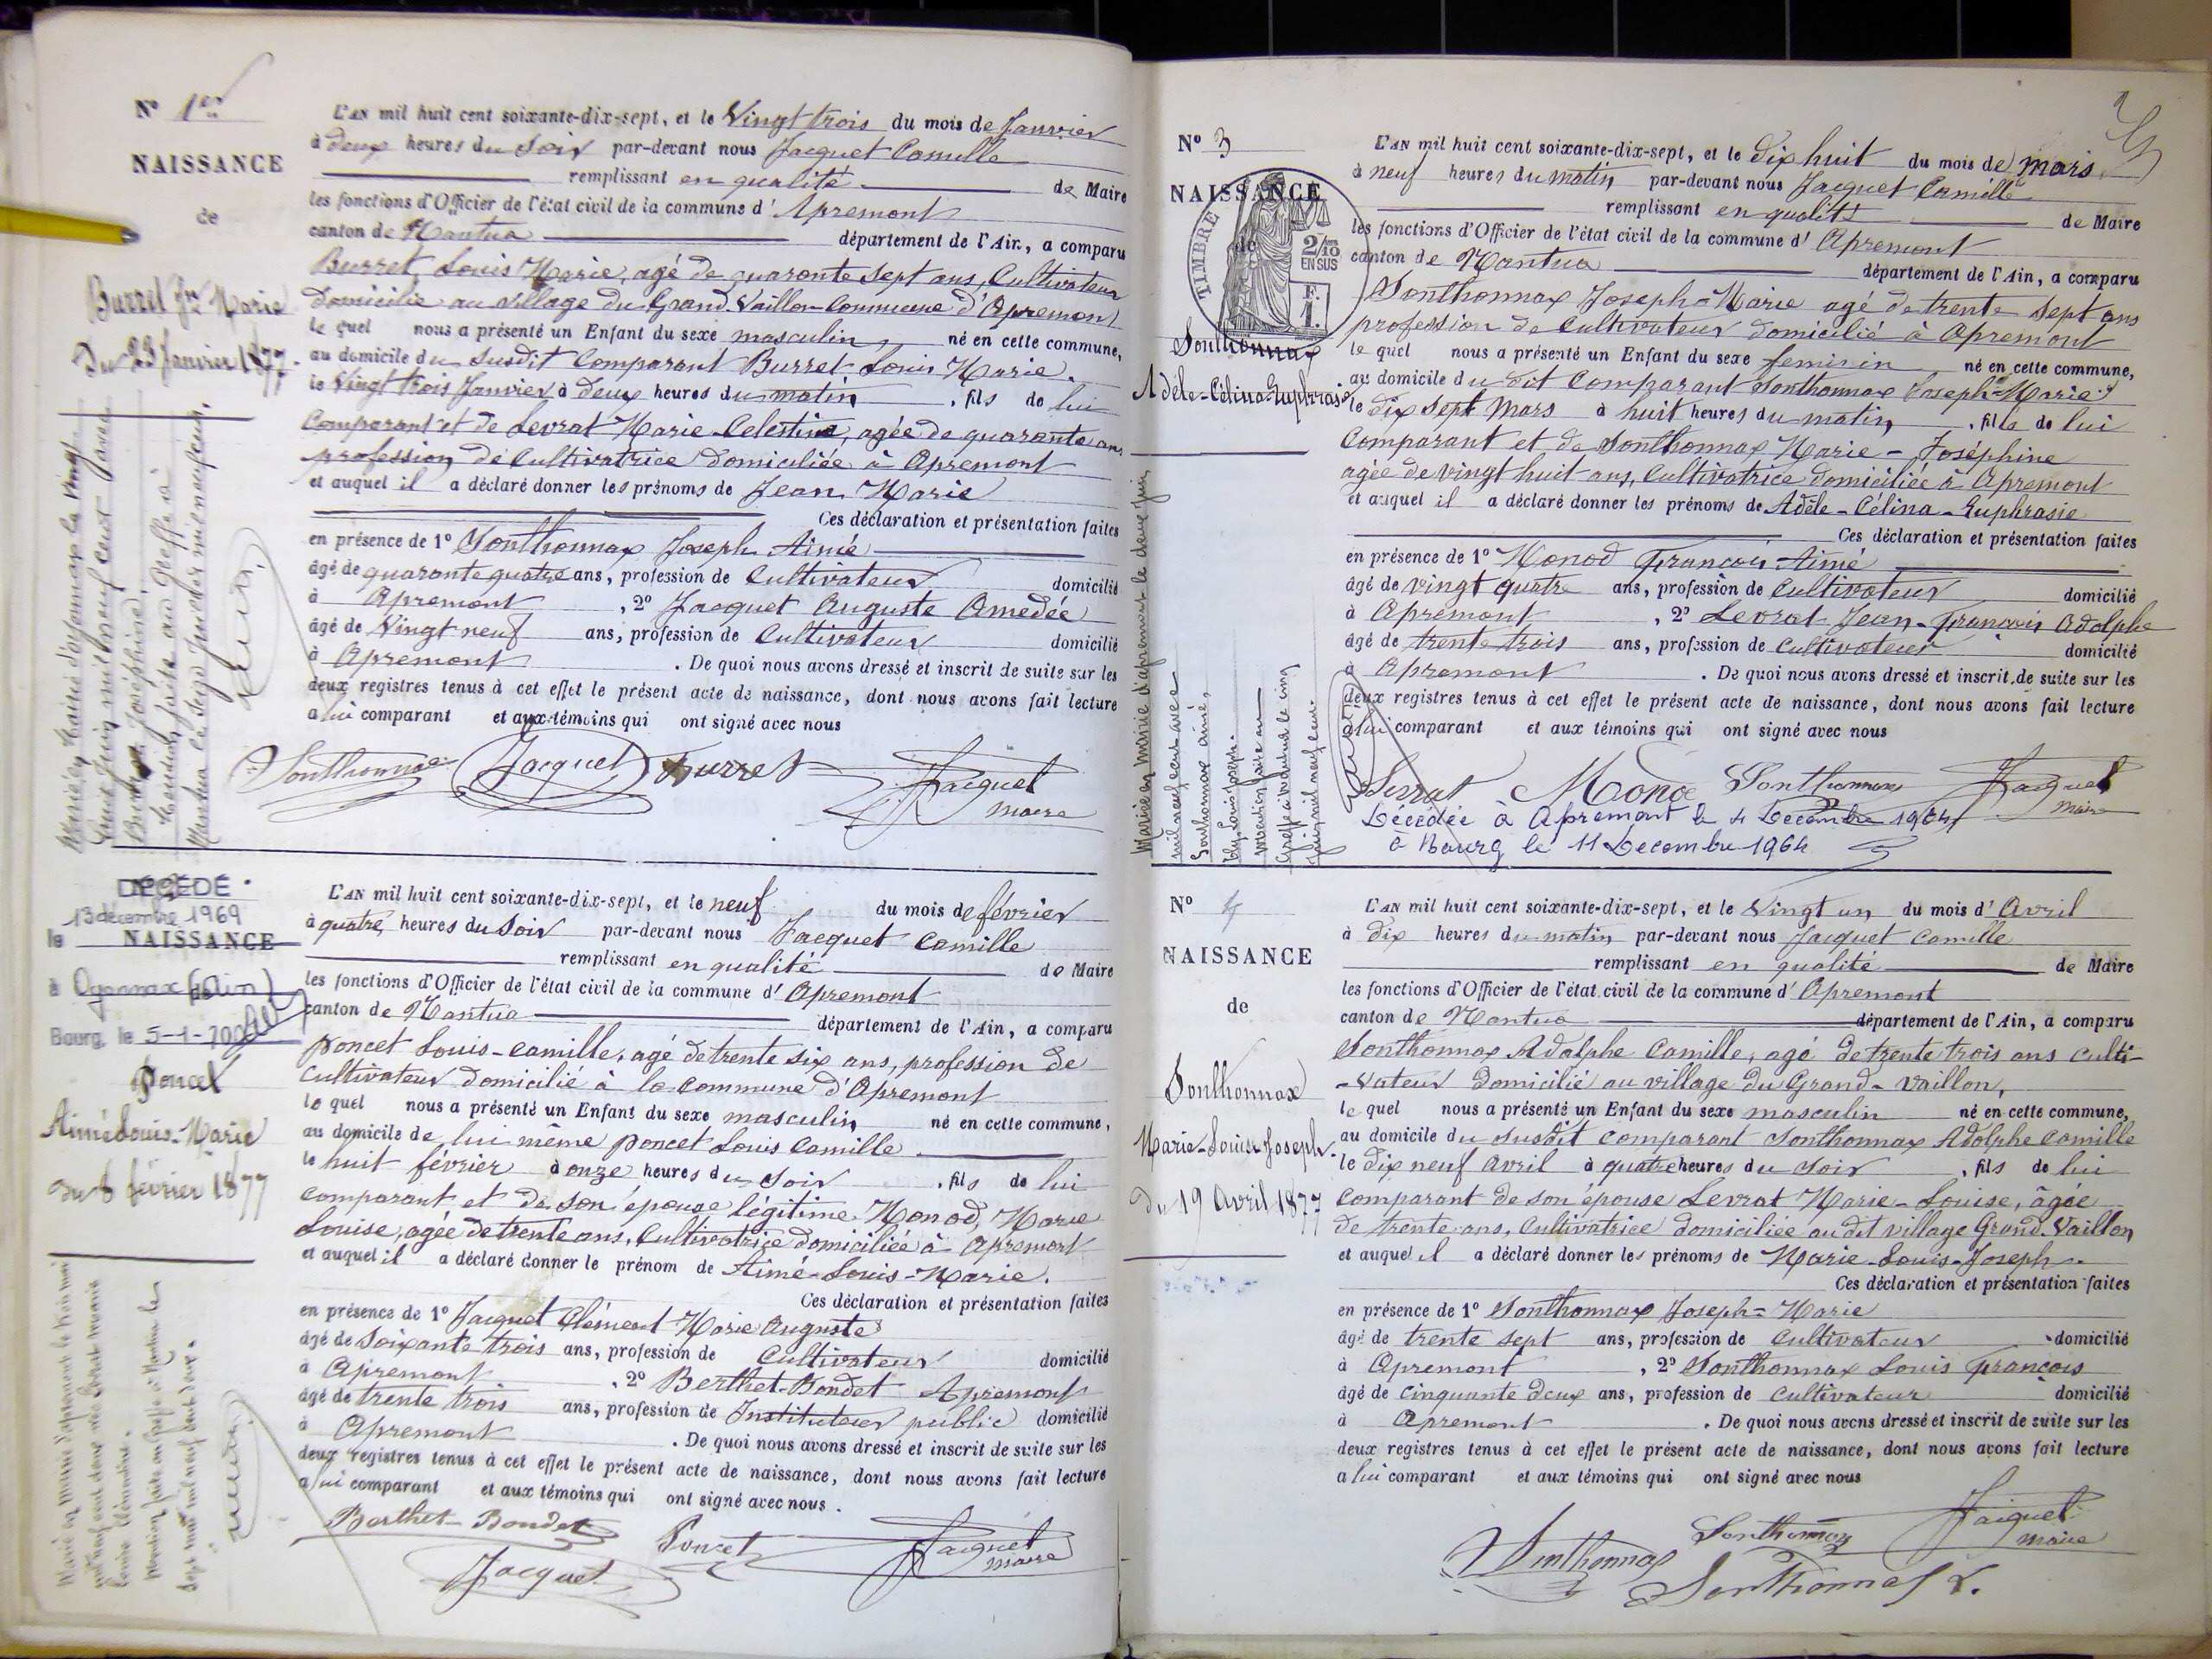 N° 1er
NAISSANCE
de
Burret Jn Marie
Du 23 Janvier 1877.
L'AN mil huit cent soixante-dix-sept, et le Vingt trois du mois de Janvier
à deux heures du Soir par-devant nous Jacquet Camille
remplissant en qualité de Maire
les fonctions d'Officier de l'état civil de la commune d' Apremont
canton de Nantua département de l'Ain, a comparu
Burret, Louis Marie, agé de quarante sept ans, Cultivateur
domicilié au village du Grand-Vaillon Commune d'Apremont
le quel nous a présenté un Enfant du sexe masculin, né en cette commune,
au domicile du susdit Comparant Burret Louis Marie.
le Vingt trois Janvier à deux heures du matin, fils de lui
Comparant et de Levrat Marie-Celestine, agée de quarante ans
profession de Cultivatrice domiciliée à Apremont
et auquel il a déclaré donner les prénoms de Jean Marie
Ces déclaration et présentation faites
en présence de 1° Sonthonnax Joseph Aimé
âgé de quarante quatre ans, profession de Cultivateur domicilié
à Apremont, 2° Jacquet Auguste Amedée
âgé de Vingt neuf ans, profession de Cultivateur domicilié
à Apremont. De quoi nous avons dressé et inscrit de suite sur les
deux registres tenus à cet effet le présent acte de naissance, dont nous avons fait lecture
a lui comparant et aux témoins qui ont signé avec nous
Sonthonnax Jacquet Burret Jacquet
maire
DÉCÉDÉ
le 13 décembre 1969
NAISSANCE
à Oyonnax (Ain)
de
Bourg, le 5-1-70
Poncet
Aimé Louis-Marie
du 8 février 1877
L'AN mil huit cent soixante-dix-sept, et le neuf du mois de février
à quatre heures du Soir par-devant nous Jacquet Camille
remplissant en qualité de Maire
les fonctions d'Officier de l'état civil de la commune d' Apremont
canton de Nantua département de l'Ain, a comparu
Poncet Louis-Camille, agé de trente six ans, profession de
Cultivateur domicilié à la Commune d'Apremont
le quel nous a présenté un Enfant du sexe masculin né en cette commune,
au domicile de lui même Poncet Louis Camille
le huit février à onze heures du Soir, fils de lui
comparant et de son épouse légitime Monod, Marie
Louise, agée de trente ans, Cultivatrice domiciliée à Apremont
et auquel il a déclaré donner le prénom de Aimé-Louis-Marie.
Ces déclaration et présentation faites
en présence de 1° Jacquet Clément Marie Auguste
âgé de Soixante trois ans, profession de Cultivateur domicilié
à Apremont, 2° Berthet-Bondet Apremont
âgé de trente trois ans, profession de Instituteur public domicilié
à Apremont. De quoi nous avons dressé et inscrit de suite sur les
deux registres tenus à cet effet le présent acte de naissance, dont nous avons fait lecture
a lui comparant et aux témoins qui ont signé avec nous.
Berthet-Bondet Poncet Jacquet
Jacquet maire
N° 3
NAISSANCE
TIMBRE
de
2/10
EN SUS
F.
1.
Sonthonnax
Adèle-Célina-Euphrasie
L'AN mil huit cent soixante-dix-sept, et le dix huit du mois de mars
à neuf heures du matin par-devant nous Jacquet Camille
remplissant en qualité de Maire
les fonctions d'Officier de l'état civil de la commune d' Apremont
canton de Nantua département de l'Ain, a comparu
Sonthonnax Joseph-Marie agé de trente sept ans
profession de Cultivateur domicilié à Apremont
le quel nous a présenté un Enfant du sexe feminin né en cette commune,
au domicile du dit Comparant Sonthonnax Joseph-Marie
le dix sept Mars à huit heures du matin, fille de lui
Comparant et de Sonthonnax Marie-Joséphine
agée de vingt huit ans, Cultivatrice domiciliée à Apremont
et auquel il a déclaré donner les prénoms de Adèle-Célina-Euphrasie
Ces déclaration et présentation faites
en présence de 1° Monod François-Aimé
âgé de vingt quatre ans, profession de Cultivateur domicilié
à Apremont, 2° Levrat Jean-François Adolphe
âgé de trente trois ans, profession de Cultivateur domicilié
à Apremont. De quoi nous avons dressé et inscrit de suite sur les
deux registres tenus à cet effet le présent acte de naissance, dont nous avons fait lecture
a lui comparant et aux témoins qui ont signé avec nous
Levrat Monod Sonthonnax Jacquet
maire
Décédée à Apremont le 4 Decembre 1964
à Bourg le 11 Decembre 1964
N° 4
NAISSANCE
de
Sonthonnax
Marie-Louis-Joseph.
Du 19 Avril 1877
L'AN mil huit cent soixante-dix-sept, et le Vingt un du mois d' Avril
à dix heures du matin par-devant nous Jacquet Camille
remplissant en qualité de Maire
les fonctions d'Officier de l'état civil de la commune d' Apremont
canton de Nantua département de l'Ain, a comparu
Sonthonnax Adolphe Camille, agé de trente trois ans culti-
-vateur domicilié au village du Grand-Vaillon,
le quel nous a présenté un Enfant du sexe masculin né en cette commune,
au domicile du susdit comparant Sonthonnax Adolphe Camille
le dix neuf avril à quatre heures du Soir, fils de lui
Comparant de son épouse Levrat Marie-Louise, âgée
de trente ans, Cultivatrice domiciliée au dit village Grand-Vaillon
et auquel il a déclaré donner les prénoms de Marie-Louis-Joseph.
Ces déclaration et présentation faites
en présence de 1° Sonthonnax Joseph-Marie
âgé de trente sept ans, profession de Cultivateur domicilié
à Apremont, 2° Sonthonnax Louis François
âgé de Cinquante deux ans, profession de Cultivateur domicilié
à Apremont. De quoi nous avons dressé et inscrit de suite sur les
deux registres tenus à cet effet le présent acte de naissance, dont nous avons fait lecture
a lui comparant et aux témoins qui ont signé avec nous
Sonthonnax Sonthonnax Jacquet
maire
Sonthonnax L.